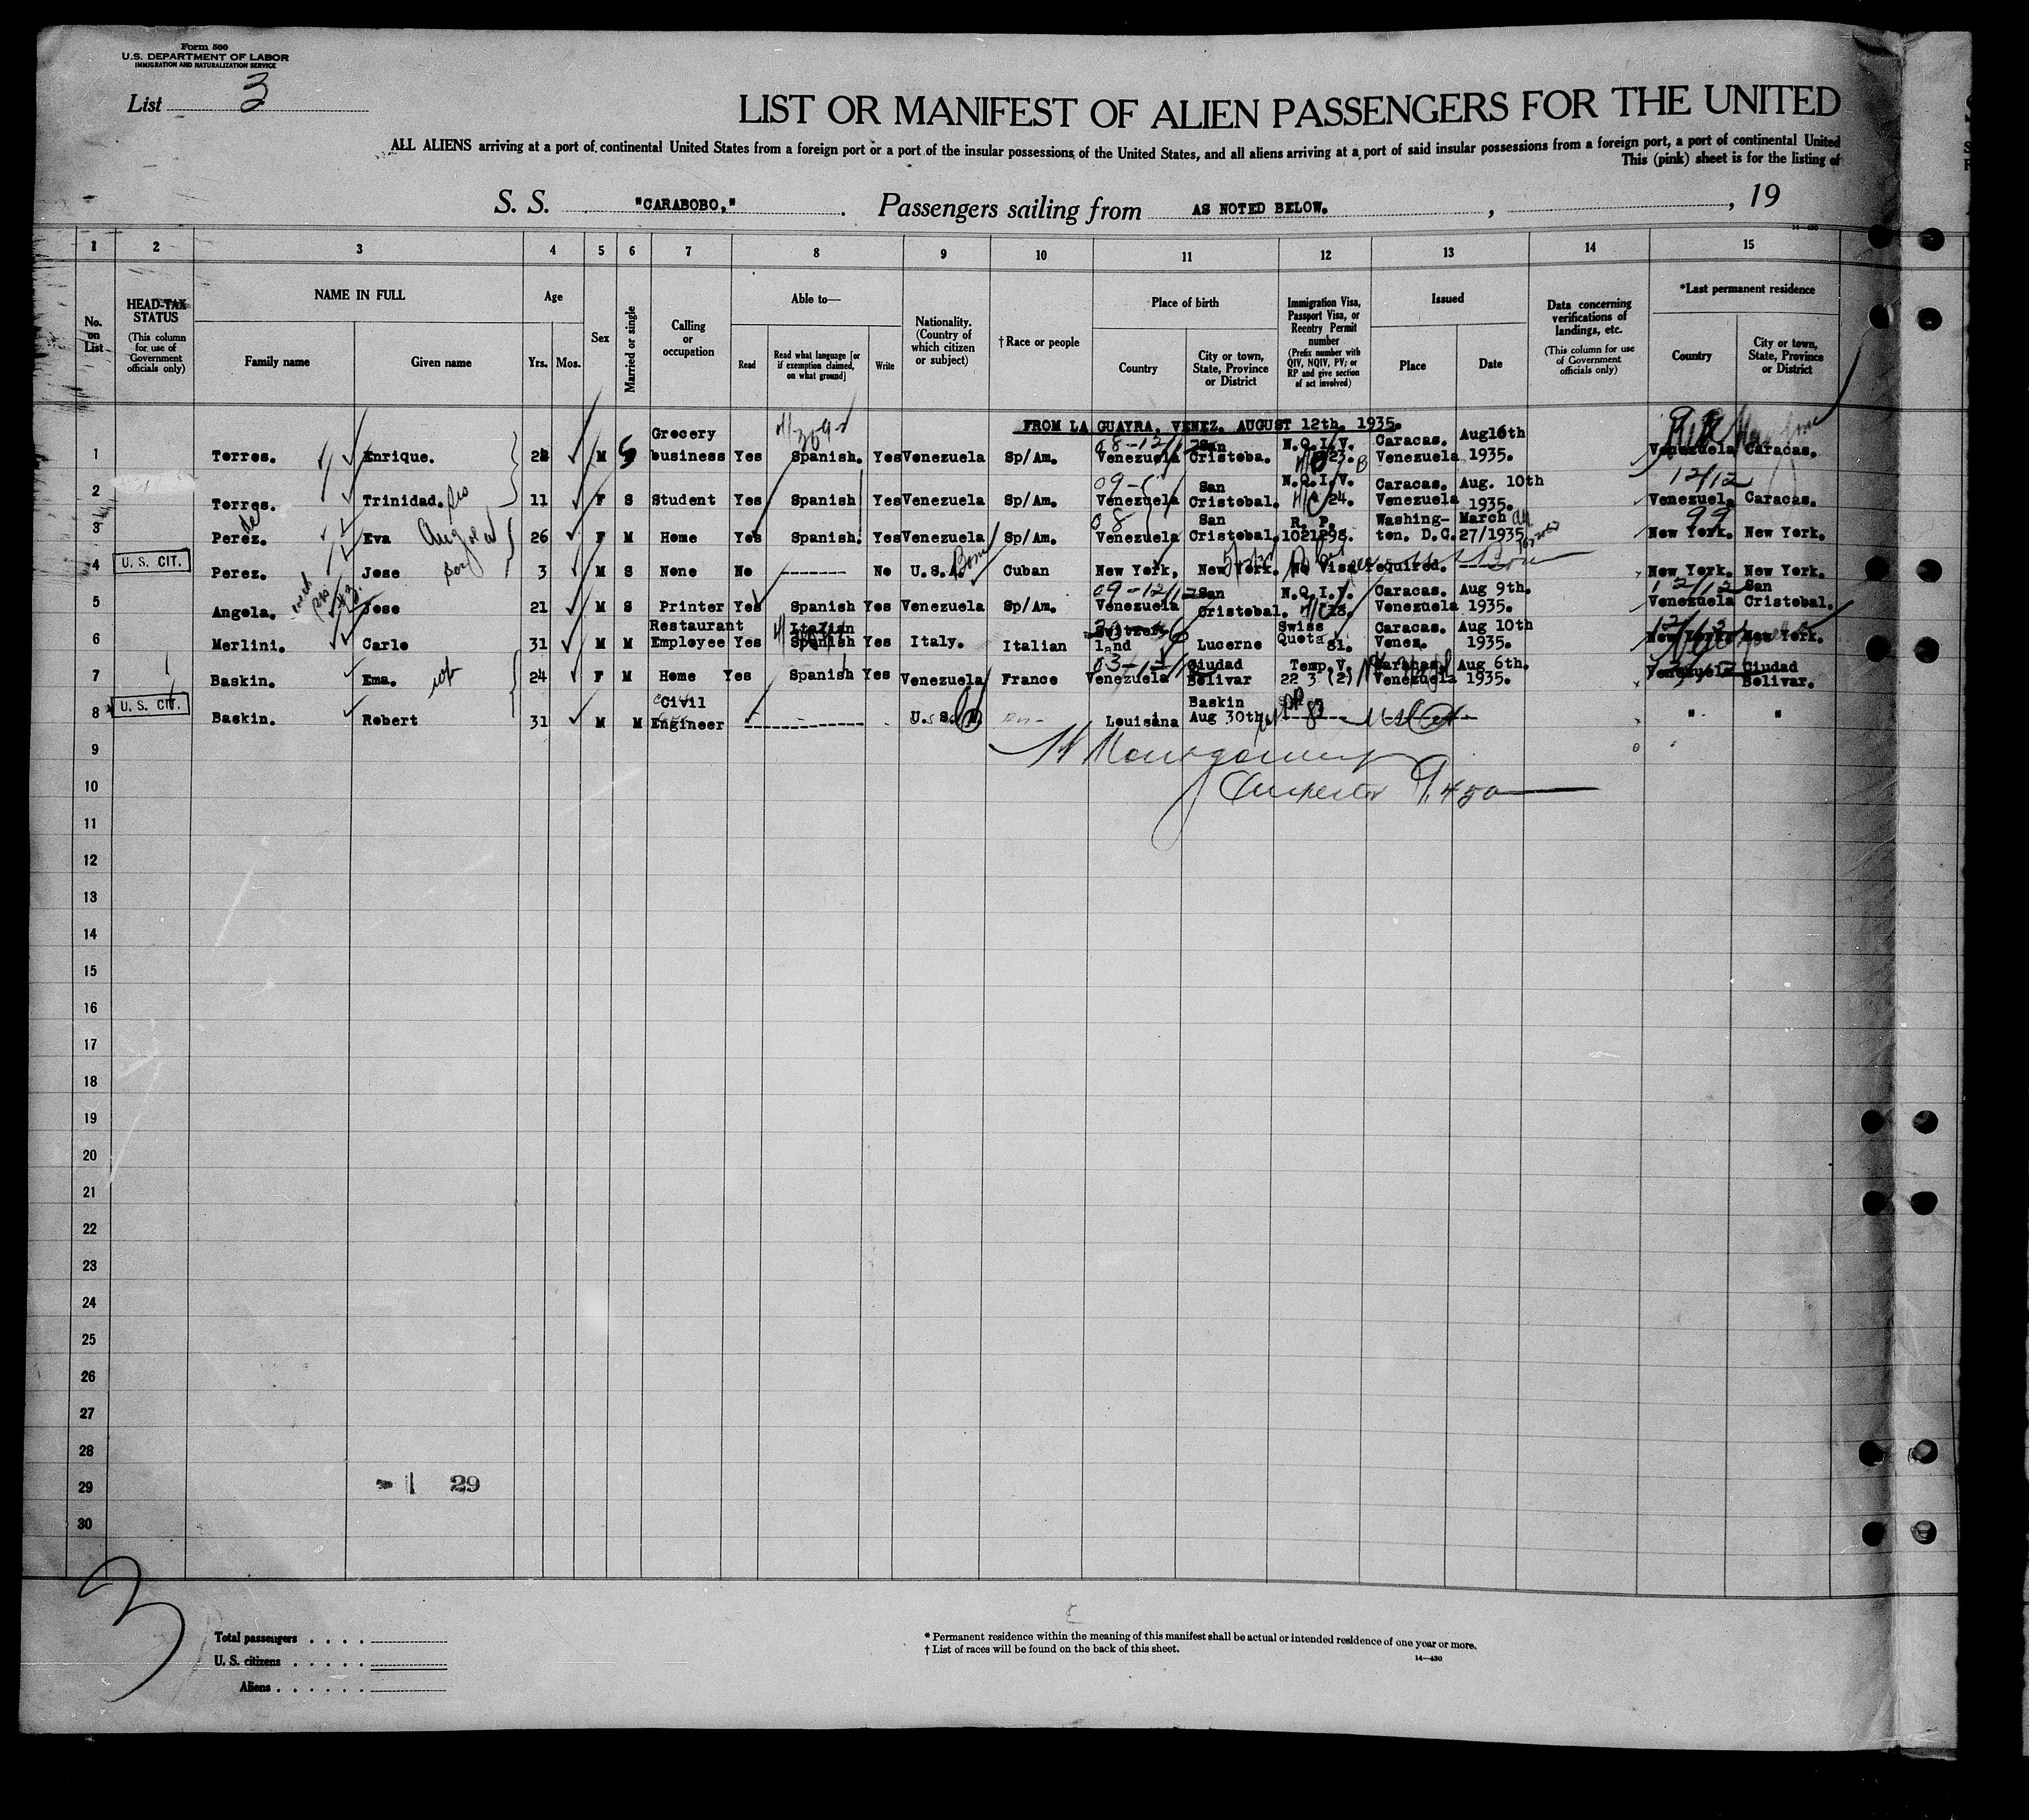 Form 500
U.S. DEPARTMENT OF LABOR
IMMIGRATION AND NATURALIZATION SERVICE
List 3
LIST OR MANIFEST OF ALIEN PASSENGERS FOR THE UNITED
ALL ALIENS arriving at a port of continental United States from a foreign port or a port of the insular possessions of the United States, and all aliens arriving at a port of said insular possessions from a foreign port, a port of continental United
This (pink) sheet is for the listing of
S. S. "CARABOBO," . Passengers sailing from AS NOTED BELOW. , , 19
14—430
1 2 3 4 5 6 7 8 9 10 11 12 13 14 15
No. on List
HEAD-TAX STATUS (This column for use of Government officials only)
NAME IN FULL Family name Given name
Age Yrs. Mos.
Sex
Married or single
Calling or occupation
Able to— Read Read what language [or if exemption claimed, on what ground] Write
Nationality. (Country of which citizen or subject)
†Race or people
Place of birth Country City or town, State, Province or District
Immigration Visa, Passport Visa, or Reentry Permit number (Prefix number with QIV, NQIV, PV, or RP and give section of act involved)
Issued Place Date
Data concerning verifications of landings, etc. (This column for use of Government officials only)
*Last permanent residence Country City or town, State, Province or District
FROM LA GUAYRA, VENEZ. AUGUST 12th. 1935.
1 Torres. Enrique. M S Grocery business Yes Spanish. Yes Venezuela Sp/Am. Venezuela San Cristoba. N.Q.I.V. 23. Caracas. Venezuela Aug16th 1935. Venezuela Caracas.
2 Torres. Trinidad. sis 11 F S Student Yes Spanish Yes Venezuela Sp/Am. Venezuela San Cristobal. N.Q.I.V. 24. Caracas. Venezuela Aug. 10th 1935. Venezuela Caracas. 12/12
3 Perez. de Eva Angola 26 F M Home Yes Spanish. Yes Venezuela Sp/Am. Venezuela San Cristobal. R. P. 1021298. Washing- ton. D.C. March 27/1935 New York. New York. 99
4 U. S. CIT. Perez. Jose son 3 M S None No -------- No U.S.A. Born Cuban New York, New York. No Visa required. New York. New York.
5 Angola. Jose 21 M S Printer Yes Spanish Yes Venezuela Sp/Am. Venezuela San Cristobal. N.Q.I.V. Caracas. Venezuela Aug 9th. 1935. Venezuela San Cristobal. 12/12
6 Merlini. Carlo 31 M M Restaurant Employee Yes Italian Spanish Yes Italy. Italian Switzer- land Lucerne Swiss Quota 81. Caracas. Venez. Aug 10th 1935. New York. New York.
7 Baskin. Ema. 24 F M Home Yes Spanish Yes Venezuela France Venezuela Ciudad Bolivar Temp.V. 22 3 (2) Caracas. Venezuela Aug 6th. 1935. Venezuela Ciudad Bolivar.
8 U. S. CIT. Baskin. Robert 31 M M Civil Engineer -------------- U.S. Louisiana Baskin Aug 30th " "
9 H Montgomery
10 Inspector
11
12
13
14
15
16
17
18
19
20
21
22
23
24
25
26
27
28
29 - 1 29
30
3
Total passengers . . . .
U. S. citizens . . . . .
Aliens . . . . . .
* Permanent residence within the meaning of this manifest shall be actual or intended residence of one year or more.
† List of races will be found on the back of this sheet.
14—430